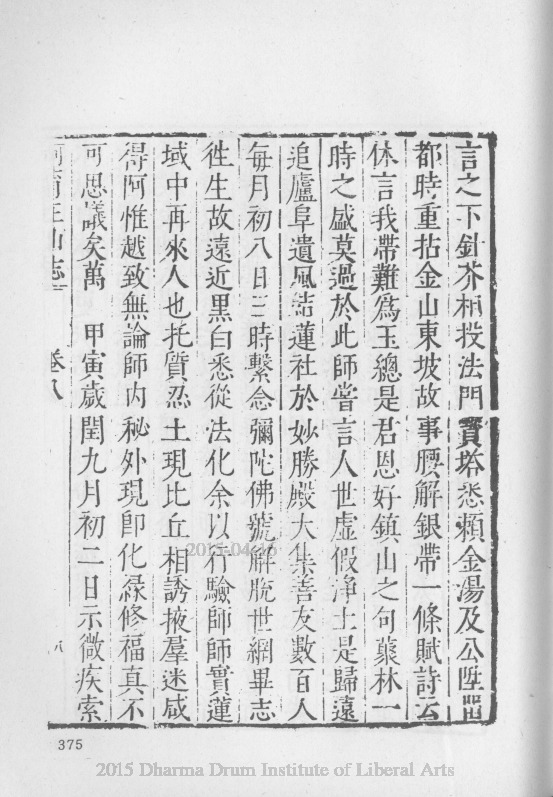 言之下針芥相投法門寶塔悉賴金湯及公陞留
都時重拈金山東坡故事腰解銀帶一條賦詩云
休言我帶難爲玉總是君恩好鎮山之句叢林一
時之盛莫過於此師嘗言人世虛假淨土是歸遠
追廬阜遺風結蓮社於妙勝殿大集善友數百人
每月初八日三時繫念彌陀佛號解脫世網畢志
徃生故遠近黑白悉從法化余以行驗師師實蓮
域中再來人也托質忍土現比丘相誘掖羣迷咸
得阿惟越致無論師內秘外現卽化緣修福眞不
可思議矣萬 甲寅歲閏九月初二日示微疾索
阿育王山志 卷八 八
375
2015-04-16
2015 Dharma Drum Institute of Liberal Arts